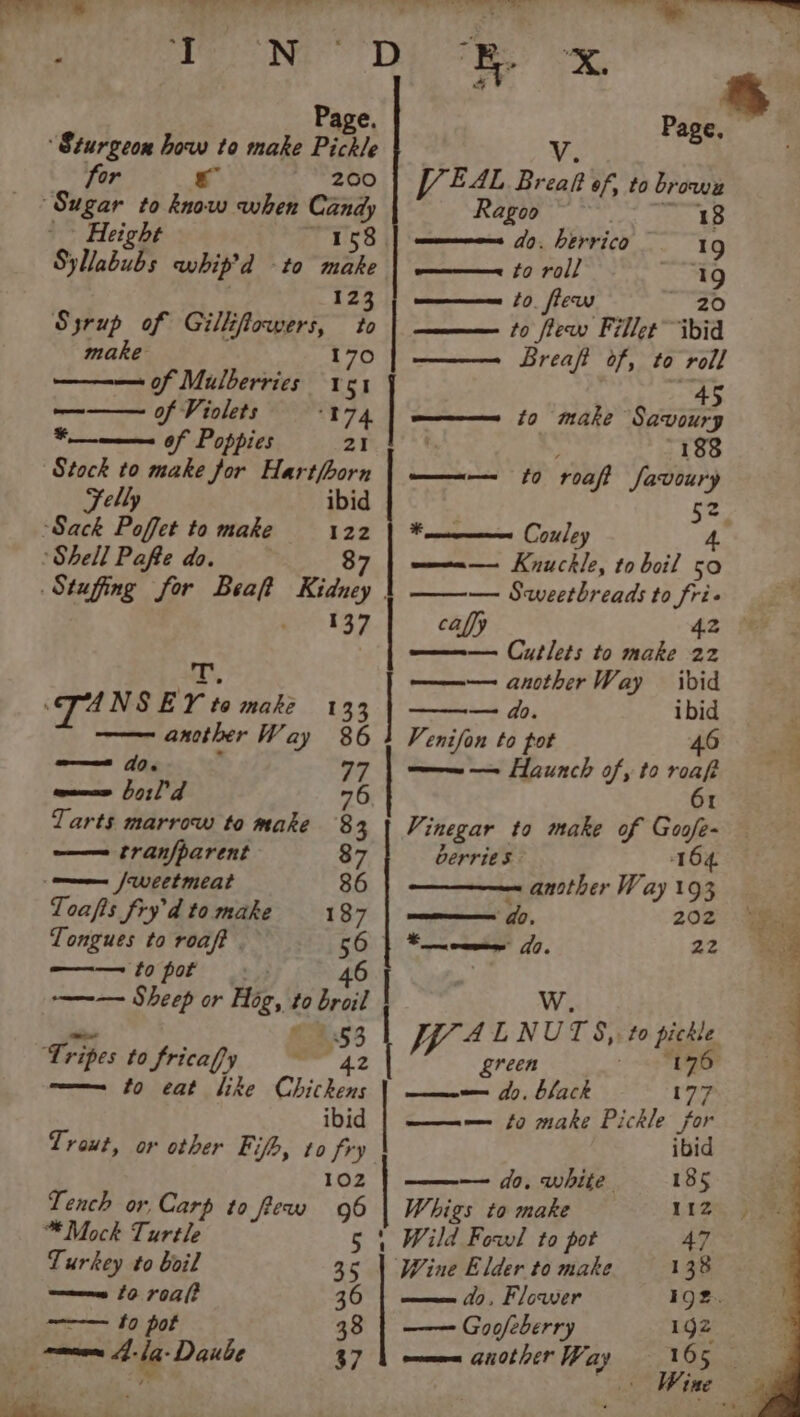 I N D E X.
Page.
Sturgeon how to make Pickle
for 200
Sugar to know when Candy
Height 158
Syllabubs whip'd to make
123
Syrup of Gilliflowers, to
make 170
—— of Mulberries 151
—— of Violets 174
*—— of Poppies 21
Stock to make for Hartſhorn
Jelly ibid
Sack Poſſet to make 122
Shell Paſte do. 87
Stuffing for Beaſt Kidney
137
T.
TANSEY to make 133
—— another Way 86
—— do. 77
—— boil'd 76
Tarts marrow to make 83
—— tranſparent 87
—— ſweetmeat 86
Toaſts fry'd to make 187
Tongues to roaſt 56
—— to pot 46
—— Sheep or Hog, to broil
53
Tripes to fricaſſy 42
—— to eat like Chickens
ibid
Trout, or other Fiſh, to fry
102
Tench or Carp to ſtew 96
*Mock Turtle 5
Turkey to boil 35
—— to roaſt 36
—— to pot 38
—— A-la-Daube 37
Page.
V.
VEAL Breaſt of, to brown
Ragoo 18
—— do. herrico 19
—— to roll 19
—— to ſtew 20
—— to ſtew Fillet ibid
—— Breaſt of, to roll
45
—— to make Savoury
188
—— to roaſt ſavoury
52
*—— Couley 4
—— Knuckle, to boil 50
—— Sweetbreads to fri-
caſſy 42
—— Cutlets to make 22
—— another Way ibid
—— do. ibid
Veniſon to pot 46
—— Haunch of, to roaſt
61
Vinegar to make of Gooſe-
berries 164
—— another Way 193
—— do. 202
*—— do. 22
W.
WALNUTS, to pickle
green 176
—— do. black 177
—— to make Pickle for
ibid
—— do. white 185
Whigs to make 112
Wild Fowl to pot 47
Wine Elder to make 138
—— do. Flower 192
—— Gooſeberry 192
—— another Way 165
Wine